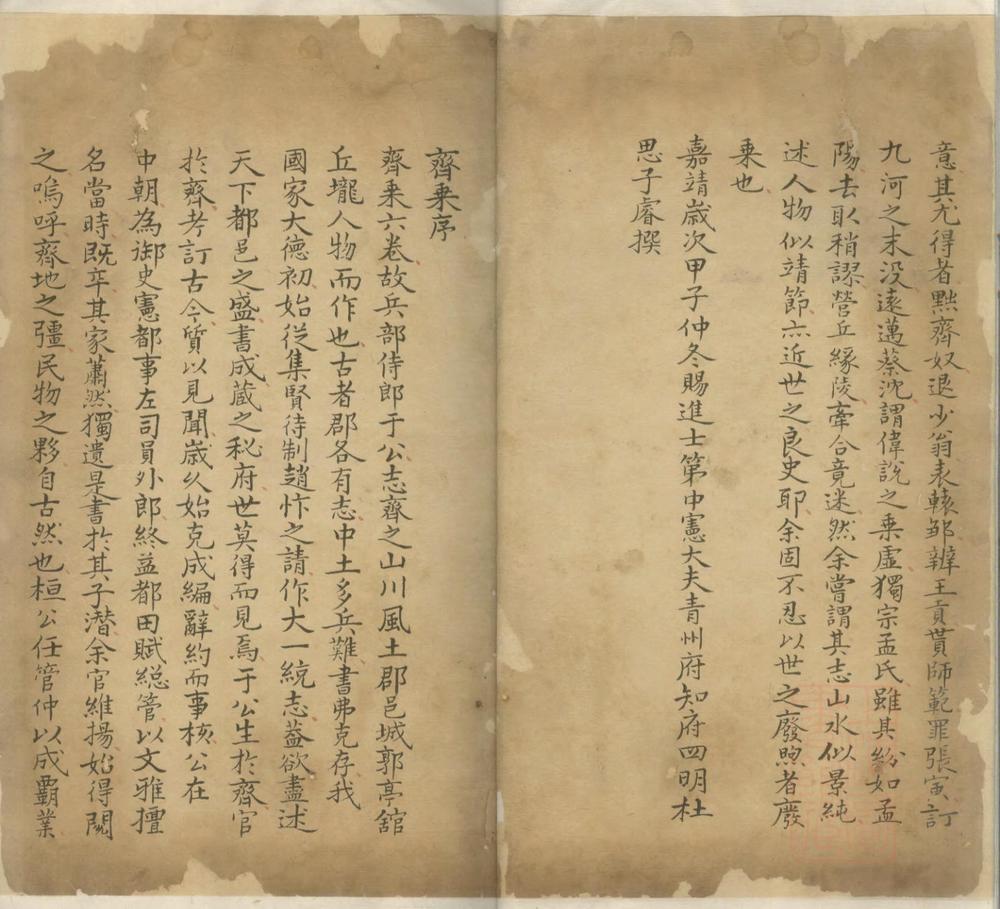 意其尤得者黜齊奴退少翁表轅邹辨王貢貰師範罪張寅訂
九河之末没遠邁蔡沈謂偉說之乗虛獨宗孟氏雖其紛如孟
陽去取稍謬營丘緣陵牽合竟迷然余嘗謂其志山水似景純
述人物似靖節亦近世之良史耶余固不忍以世之廢煦者廢
乗也
嘉靖歲次甲子仲冬賜進士第中憲大夫青州府知府四明杜
思子睿撰
齊乗序
齊乗六卷故兵部侍郎于公志齊之山川風土郡邑城郭亭舘
丘壠人物而作也古者郡各有志中土多兵難書弗克存我
國家大德初始從集賢待制趙忭之請作大一統志葢欲盡述
天下都邑之盛書成藏之秘府世莫得而見焉于公生於齊官
於齊考訂古今質以見聞歲久始克成編辭約而事核公在
中朝為御史憲都事左司員外郎終益都田賦緫管以文雅擅
名當時既卒其家蕭然獨遺是書於其子潜余官維揚始得閱
之嗚呼齊地之彊民物之夥自古然也桓公任管仲以成霸業